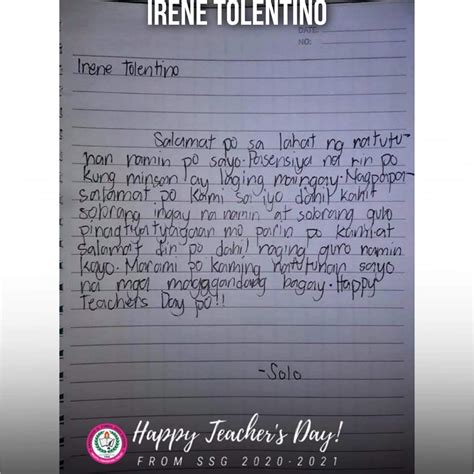 IRENE TOLENTINO
DATE:
NO:
Irene Tolentino
Salamat po sa lahat ng natutu-
nan namin po sayo. Pasensiya na rin po
kung minsan ay laging maingay. Nagpapa-
salamat po kami sa iyo dahil kahit
sobrang ingay na namin at sobrang gulo
pinagtiyatyagaan mo parin po kami at
salamat din po dahil naging guro namin
kayo. Marami po kaming natutunan sayo
na mga magagandang bagay. Happy
Teachers Day po!!
-Solo
Happy Teacher's Day!
FROM SSG 2020-2021